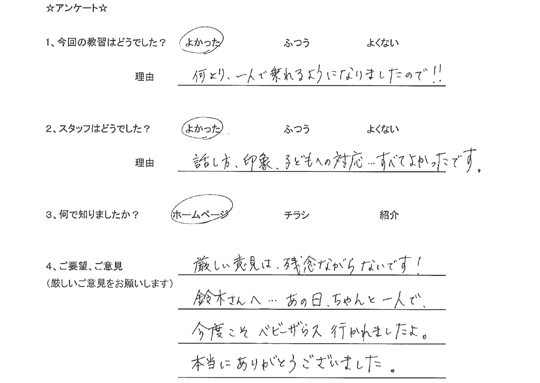 ☆アンケート☆
1、今回の教習はどうでした？ よかった ふつう よくない
理由 何とか、一人で乗れるようになりましたので!!
2、スタッフはどうでした？ よかった ふつう よくない
理由 話し方、印象、子どもへの対応…すべてよかったです。
3、何で知りましたか？ ホームページ チラシ 紹介
4、ご要望、ご意見 厳しい意見は、残念ながらないです！
(厳しいご意見をお願いします)
鈴木さんへ…あの日、ちゃんと一人で、
今度こそ ベビーザらス 行かれましたよ。
本当にありがとうございました。